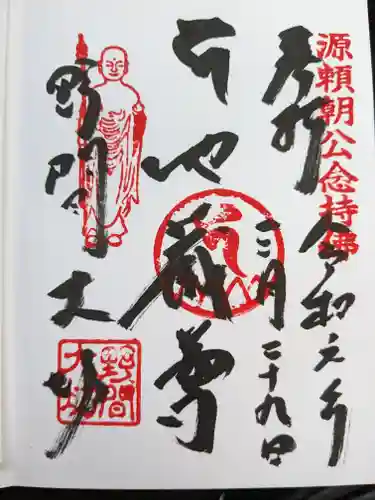 源頼朝公念持佛
奉拝 令和元年
二月二十九日
地蔵尊
野間大坊
野間
大坊